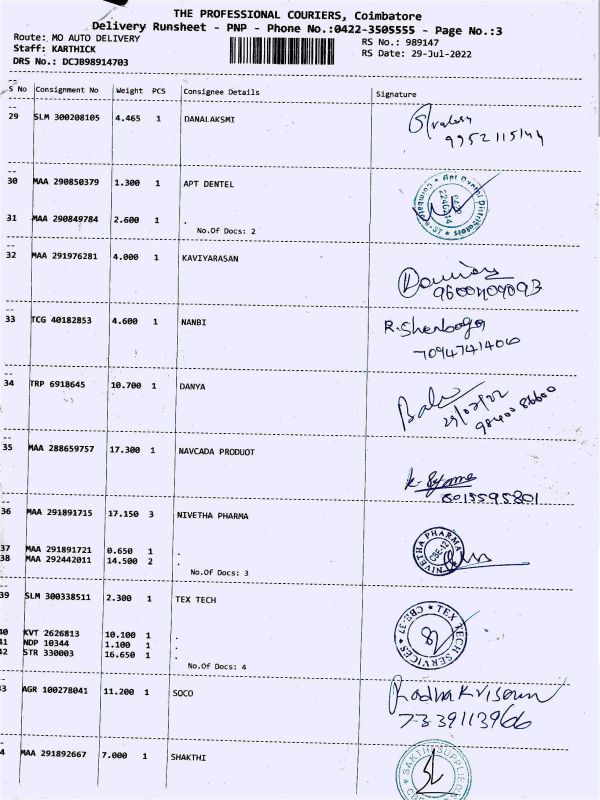 THE PROFESSIONAL COURIERS, Coimbatore
Delivery Runsheet - PNP - Phone No.:0422-3505555 - Page No.:3
Route: MO AUTO DELIVERY
RS No.: 989147
Staff: KARTHICK
RS Date: 29-Jul-2022
DRS No.: DCJB98914703
S No Consignment No Weight PCS Consignee Details Signature
29 SLM 300208105 4.465 1 DANALAKSMI
9952115144
30 MAA 290850379 1.300 1 APT DENTEL
Apt Dental Distributors
Coimbatore-37
31 MAA 290849784 2.600 1 .
No.Of Docs: 2
32 MAA 291976281 4.000 1 KAVIYARASAN
33 TCG 40182853 4.600 1 NANBI
R.Shenbaga
34 TRP 6918645 10.700 1 DANYA
Balu
29/07/22
98400 86600
35 MAA 288659757 17.300 1 NAVCADA PRODUOT
8015595801
36 MAA 291891715 17.150 3 NIVETHA PHARMA
NIVETHA PHARMA
CBE-12
37 MAA 291891721 0.650 1 .
38 MAA 292442011 14.500 2 .
No.Of Docs: 3
39 SLM 300338511 2.300 1 TEX TECH
TEX TECH SERVICES CBE-37
40 KVT 2626813 10.100 1 .
41 NDP 10344 1.100 1 .
42 STR 330003 16.650 1 .
No.Of Docs: 4
3 AGR 100278041 11.200 1 SOCO
Radhakrishnan
7339113966
4 MAA 291892667 7.000 1 SHAKTHI
SAKTHI SUPPLIERS